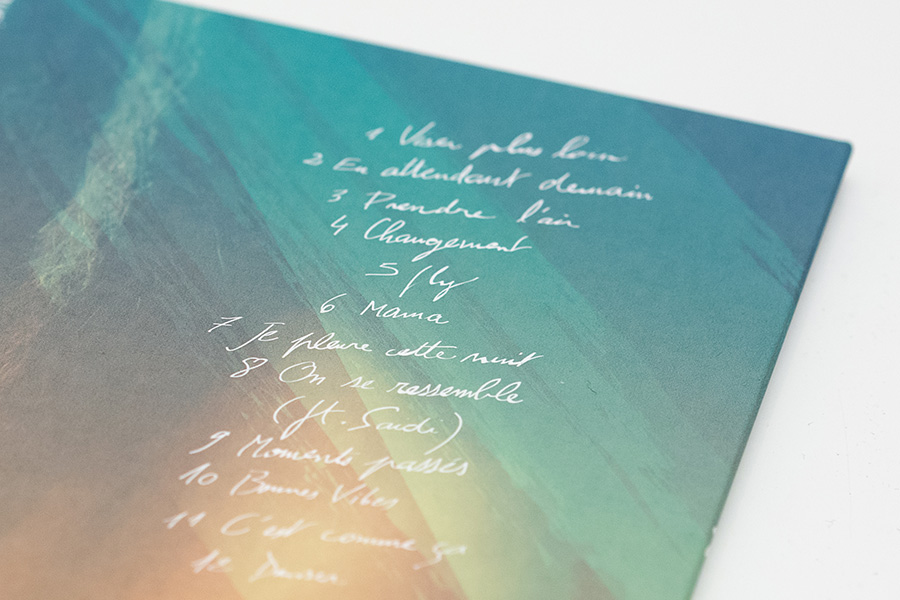 1 Viser plus loin
2 En attendant demain
3 Prendre l'air
4 Changement
5 fly
6 Mama
7 Je pleure cette nuit
8 On se rassemble
(ft. Saidi)
9 Moments passés
10 Bonnes Vibes
11 C'est comme ça
12 Danser